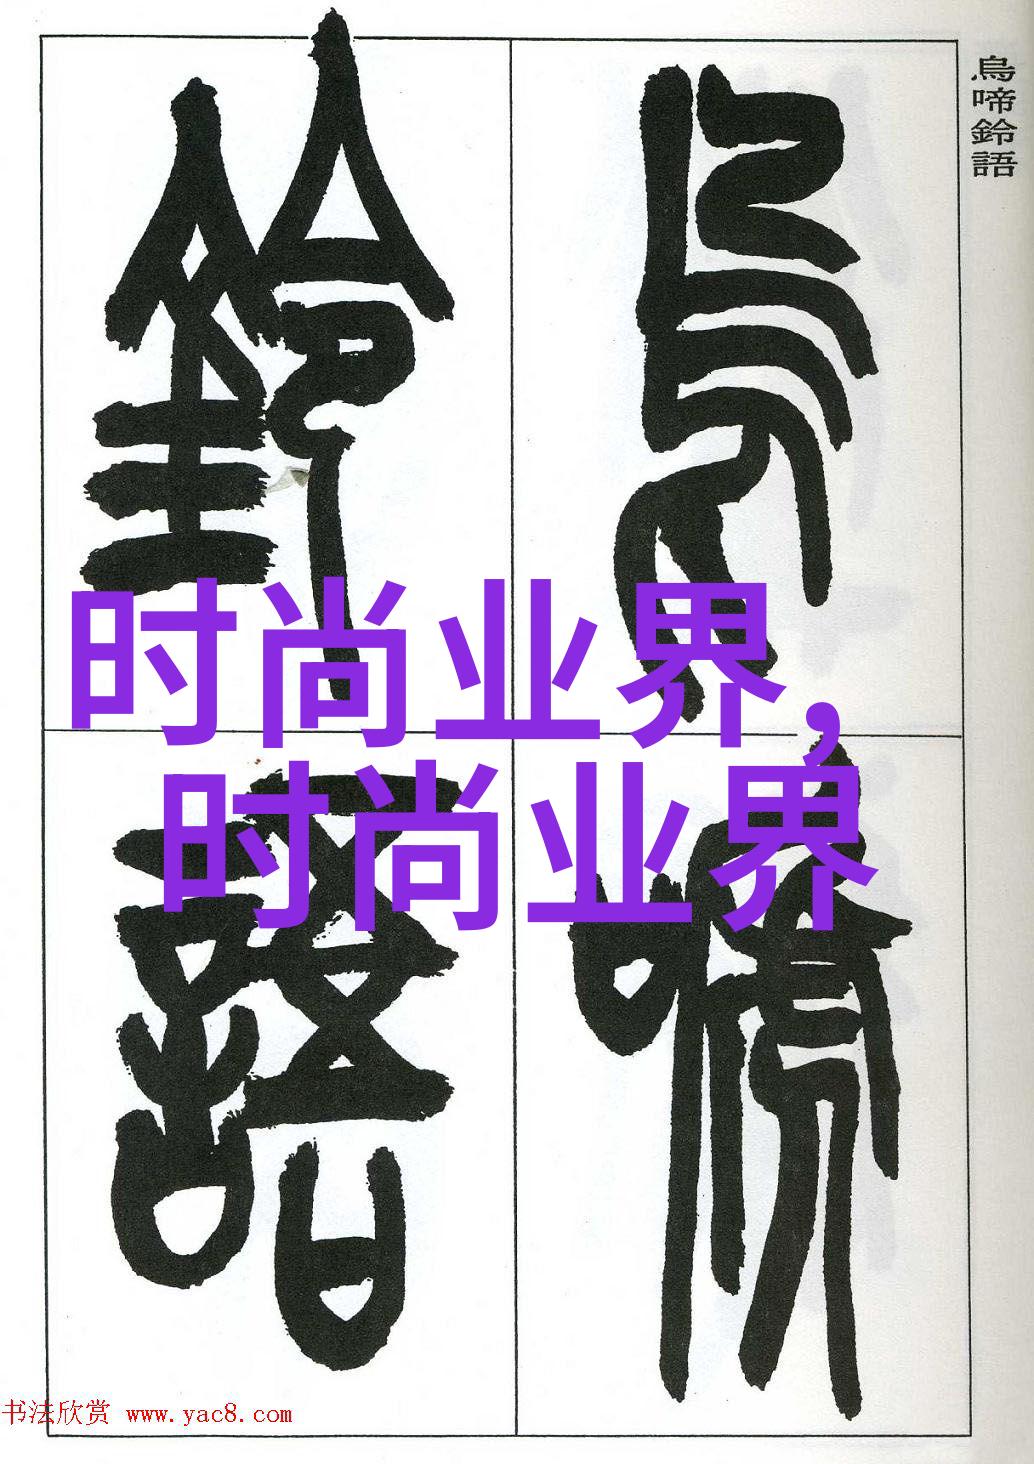 鳥啼鈴語
鳥啼
鈴語
时尚业界，
时尚业界
书法欣赏 www.yac8.com